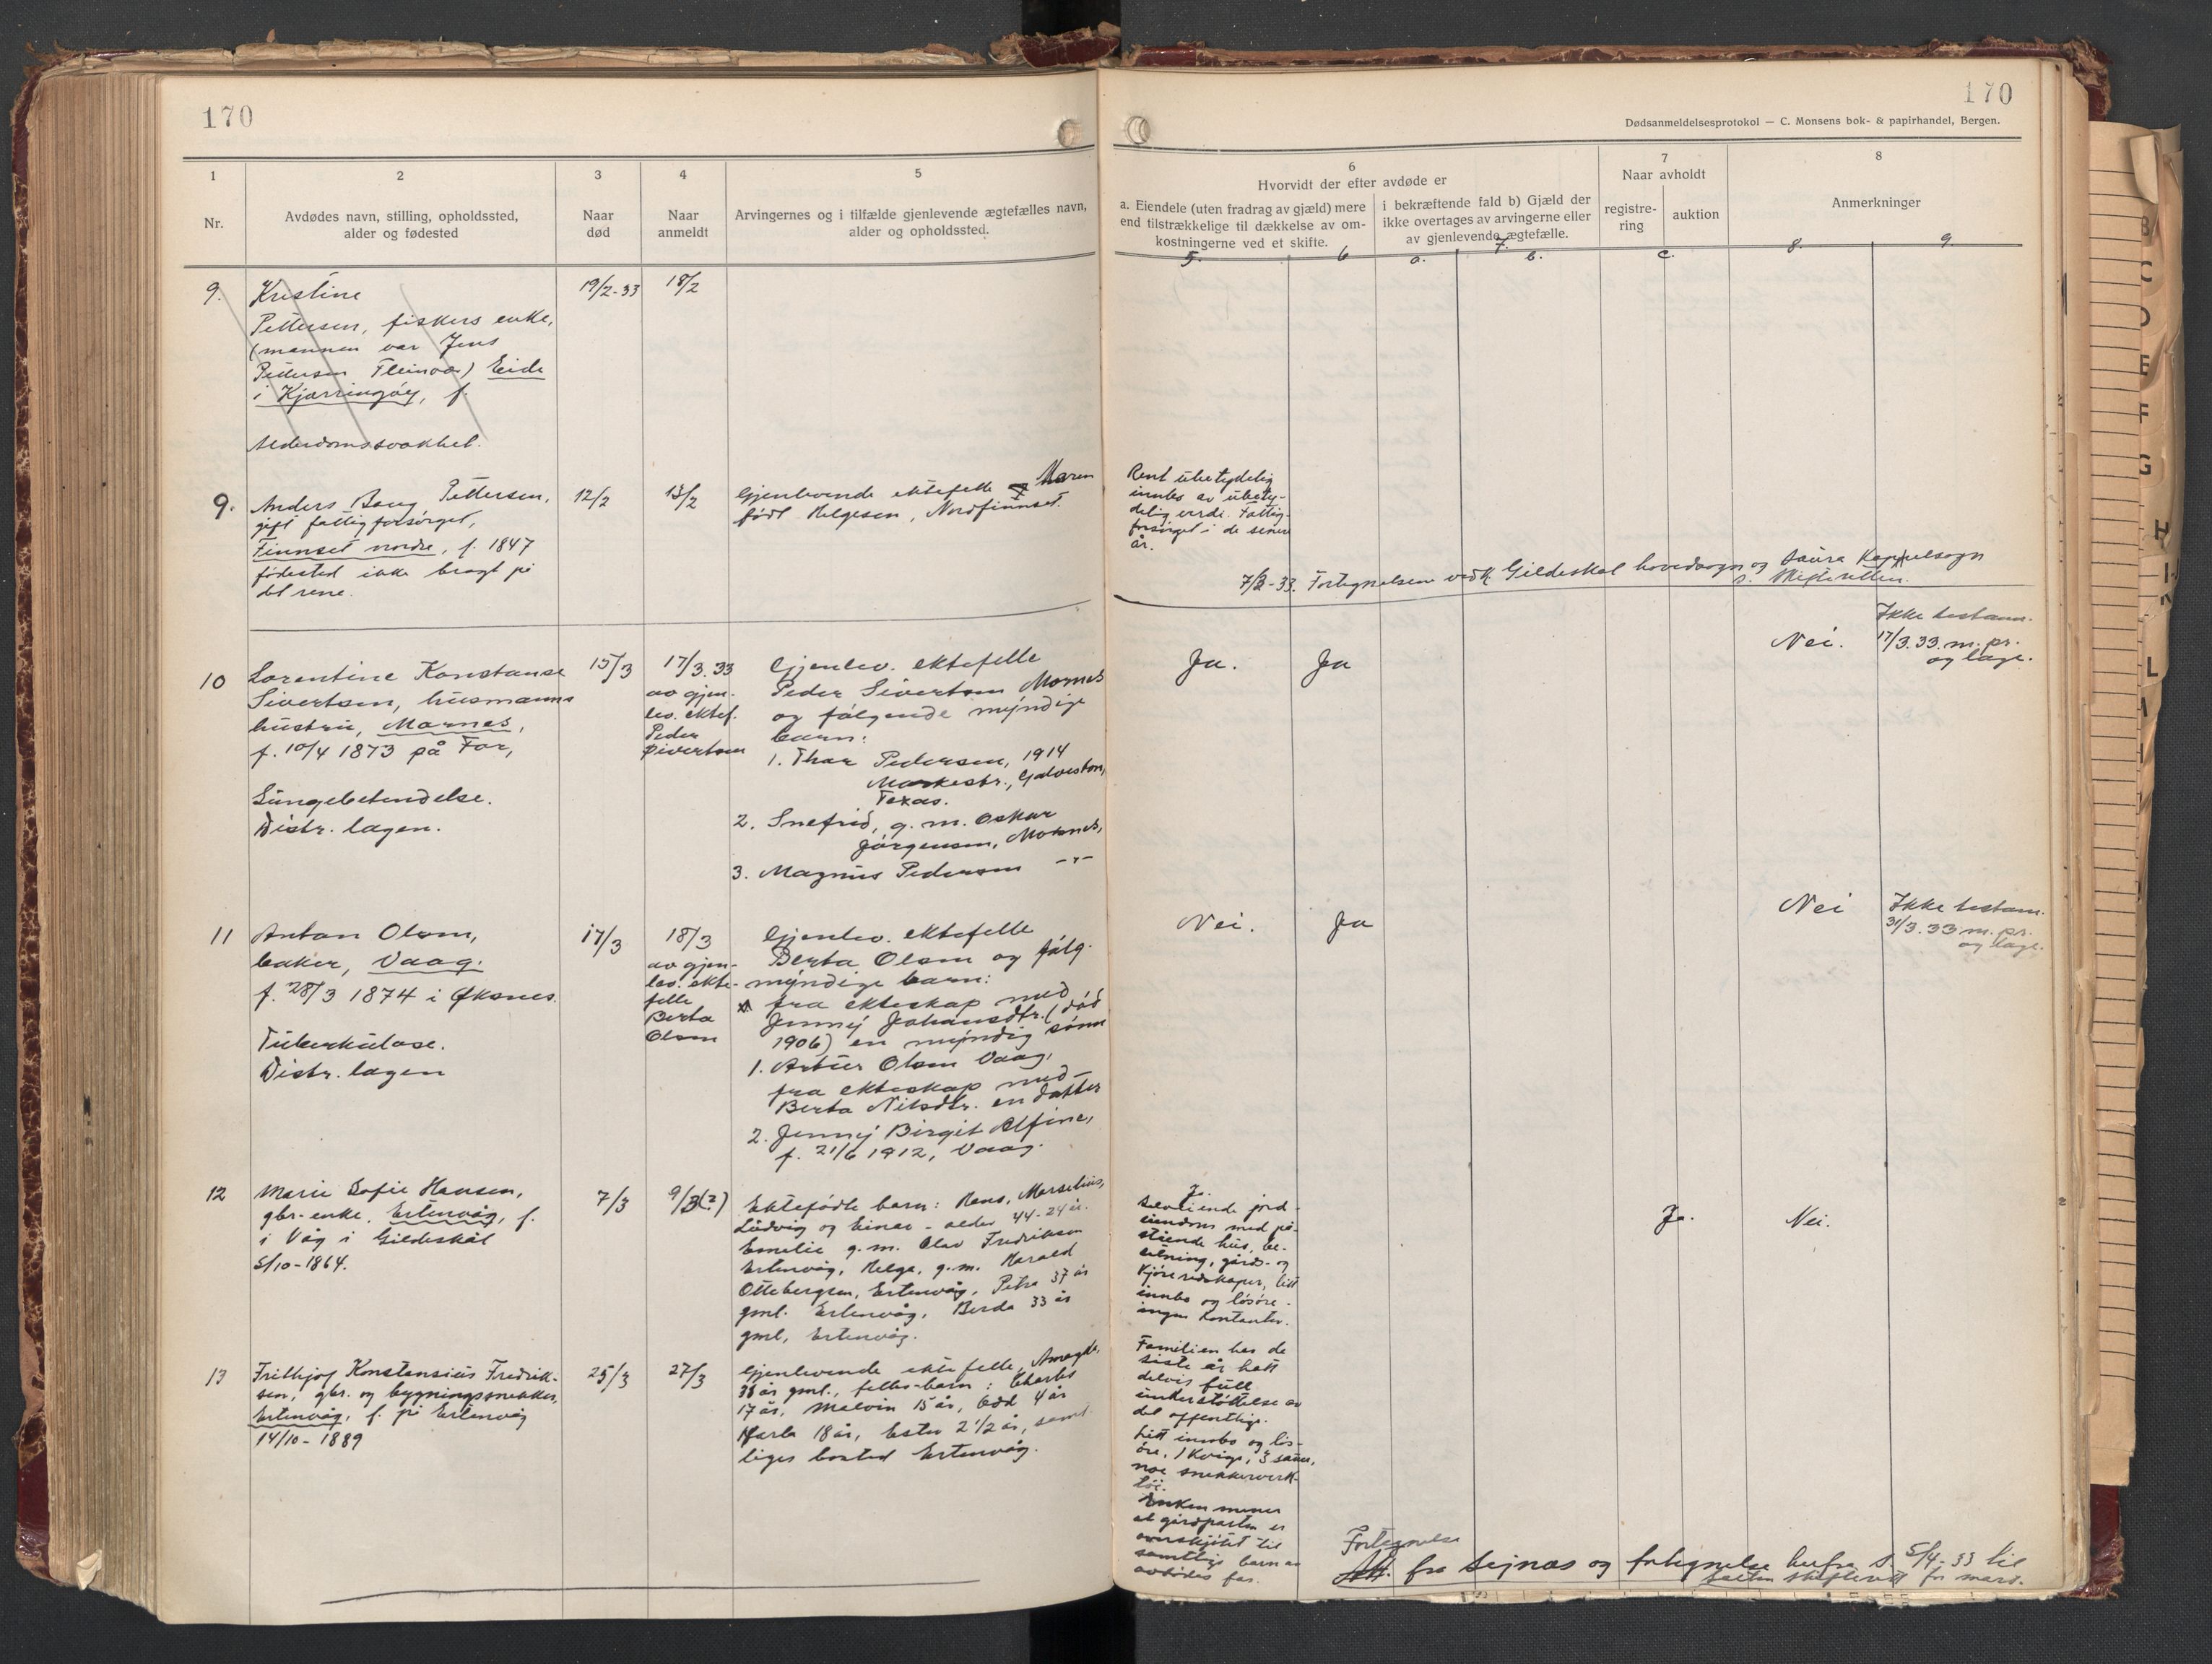 170
1
2
3
4
5
Nr.
Avdødes navn, stilling, opholdssted,
alder og fødested
Naar
død
Naar
anmeldt
Arvingernes og i tilfælde gjenlevende ægtefælles navn,
alder og opholdssted.
9.
Kristine
19/2-33
18/2
Pettersen, fiskers enke,
(mannen var Jens
Pettersen Fleinvær) Eide
i Kjærringøy, f.
Alderdomssvakhet.
9.
Anders Baug Pettersen,
gift fattigforsørget,
Finnset nordre, f. 1847
fødested ikke bragt på
det rene.
12/2
13/2
Gjenlevende ektefelle Maren
født Helgesen, Nordfinnset.
10
Lorentine Konstanse
Sivertsen, husmanns
hustru, Marnes,
f. 10/4 1873 på For,
Lungebetendelse.
Distr. lægen.
15/3
17/3.33
av gjen-
lev. ektef.
Peder
Sivertsen
Gjenlev. ektefelle
Peder Sivertsen Mornes
og følgende myndige
barn:
1. Thor Pedersen, 1914
Markestr., Galveston,
Texas.
2. Snefrid, g. m. Oskar
Jørgensen, Mornes,
3. Magnus Pedersen -"-
11
Anton Olsen,
baker, Vaag.
f. 28/3 1874 i Øksnes.
Tuberkulose.
Distr. lægen
17/3
18/3
av gjen-
lev. ekte-
felle
Berta
Olsen
Gjenlev. ektefelle
Berta Olsen og følg.
myndige barn:
fra ekteskap med
Jenny Johansdtr. (død
1906) en myndig sønn
1. Artur Olsen Vaag,
fra ekteskap med
Berta Nilsdtr. en datter
2. Jenny Birgit Alfine,
f. 21/6 1912, Vaag.
12
Marie Sofie Hansen,
gbr. enke, Ertenvåg, f.
i Våg i Gildeskål
5/10-1864.
7/3
9/3(?)
Ektefødte barn: Hans, Marselius,
Ludvig og Einar - alder 44-24 år.
Emelie g. m. Olav Fredriksen
Ertenvåg, Helga, g. m. Harald
Ottebergsen, Ertenvåg, Petra 37 år
gml. Ertenvåg, Berda 33 år
gml, Ertenvåg.
13
Frithjof Konstansius Fredrik-
sen, gbr. og bygningssnekker,
Ertenvåg, f. på Ertenvåg
14/10-1889
25/3
27/3
Gjenlevende ektefelle,
38 år gml., felles-barn: Charles
17 år, Malvin 15 år, Odd 4 år
18 år, Ester 2 1/2 år, samt-
liges bosted Ertenvåg.
170
Dødsanmeldelsesprotokol — C. Monsens bok- & papirhandel, Bergen.
6
Hvorvidt der efter avdøde er
a. Eiendele (uten fradrag av gjæld) mere
end tilstrækkelige til dækkelse av om-
kostningerne ved et skifte.
i bekræftende fald b) Gjæld der
ikke overtages av arvingerne eller
av gjenlevende ægtefælle.
7
Naar avholdt
registre-
ring
auktion
8
Anmerkninger
5.
6
7.
a.
b.
c.
8.
9.
Rent ubetydelig
innbo av ubety-
delig verdi. Fattig-
forsørget i de senere
år.
7/3-33. Fortegnelsen vedk. Gildeskål hovedsogn og Saura Kapelsogn
s. Skifteretten.
Ja.
Ja
Nei.
Ikke testam.
17/3.33. m. pr.
og læge.
Nei.
Ja
Nei
Ikke testam.
31/3.33 m. pr.
og læge.
Ja.
Selveiende jord-
eiendom med på-
stående hus, be-
setning, gårds- og
kjøreredskaper, litt
innbo og løsøre -
ingen kontanter.
Ja.
Nei.
Familien har de
siste år hatt
delvis full
understøttelse av
det offentlige.
Litt innbo og løs-
øre, 1 kvige, 3 sauer,
noe snekkerverk-
tøi.
Enken mener
at gårdparten er
overskjøtet til
samtlige barn av
avdødes far.
Fortegnelse
fra Sejnæs og fortegnelse herfra s. 5/4-33 til
Salten skifterett for mars.